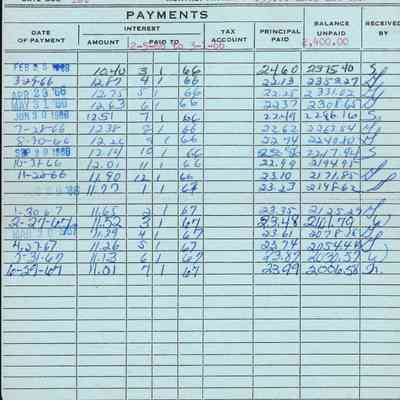 PAYMENTS
DATE OF PAYMENT INTEREST AMOUNT PAID TO TAX ACCOUNT PRINCIPAL PAID BALANCE UNPAID RECEIVED BY
2,400.00
FEB 10.40 3 1 66 24.60 2375.40
3-29-66 12.87 4 1 66 22.13 2353.27
APR 29 '66 12.75 5 1 66 22.25 2331.02
MAY 31 '66 12.63 6 1 66 22.37 2308.65
JUN 30 12.51 7 1 66 22.49 2286.16
7-28-66 12.38 8 1 66 22.62
8-30-66 12.26 9 1 66 22.74
SEP 12.14 10 1 66
12.01 11 1 66 22.99
11-28-66 11.90 12 1 66 23.10 2171.85
11.77 1 1 67 23.23 2148.62
1-30-67 11.65 2 1 67 23.35 2125.27
2-27-67 11.52 3 1 67 23.48
11.39 4 1 67 23.61 2078.18
4-27-67 11.26 5 1 67 23.74 2054.44
5-31-67 11.13 6 1 67 23.87 2030.57
6-29-67 11.01 7 1 67 23.99 2006.58